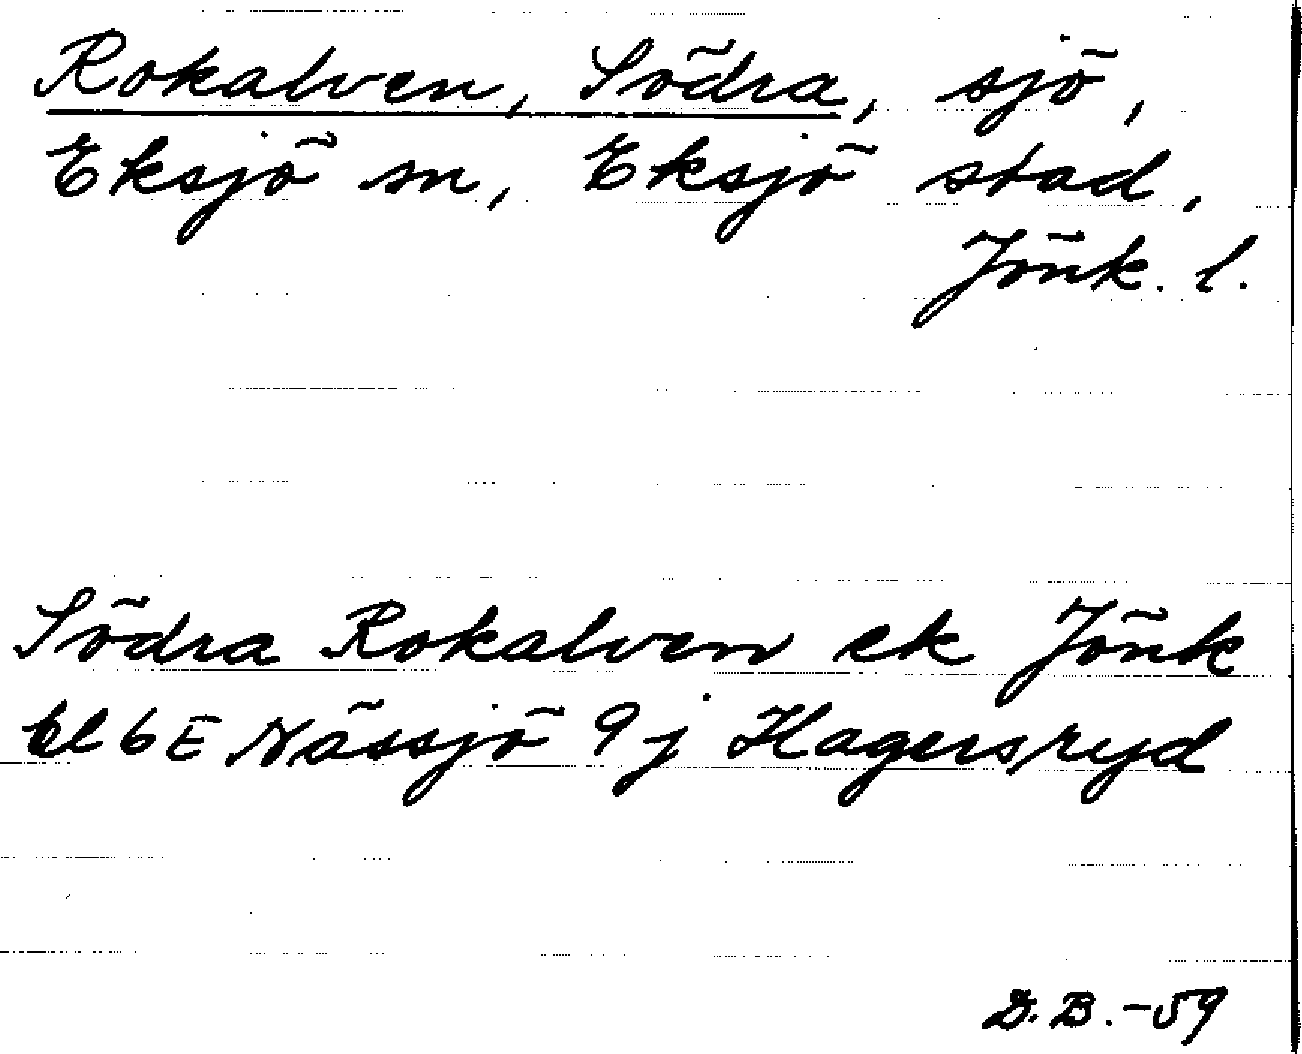 Rokalven, Södra, sjö,
Eksjö sn, Eksjö stad,
Jönk. l.
Södra Rokalven ek Jönk
bl 6E Nässjö 9j Hagersryd
D.B. -59